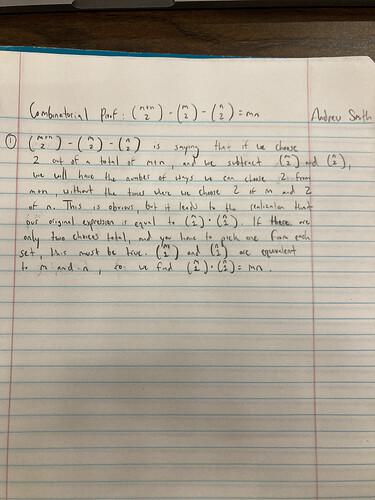 Combinatorial Proof: (m+n 2) - (m 2) - (n 2) = mn Andrew Smith
① (m+n 2) - (m 2) - (n 2) is saying that if we choose
2 out of a total of m+n, and we subtract (m 2) and (n 2),
we will have the number of ways we can choose 2 from
m+n, without the times where we choose 2 of m and 2
of n. This is obvious, but it leads to the realization that
our original expression is equal to (m 1) · (n 1). If there are
only two choices total, and you have to pick one from each
set, this must be true. (m 1) and (n 1) are equivalent
to m and n, so we find (m 1) · (n 1) = mn.